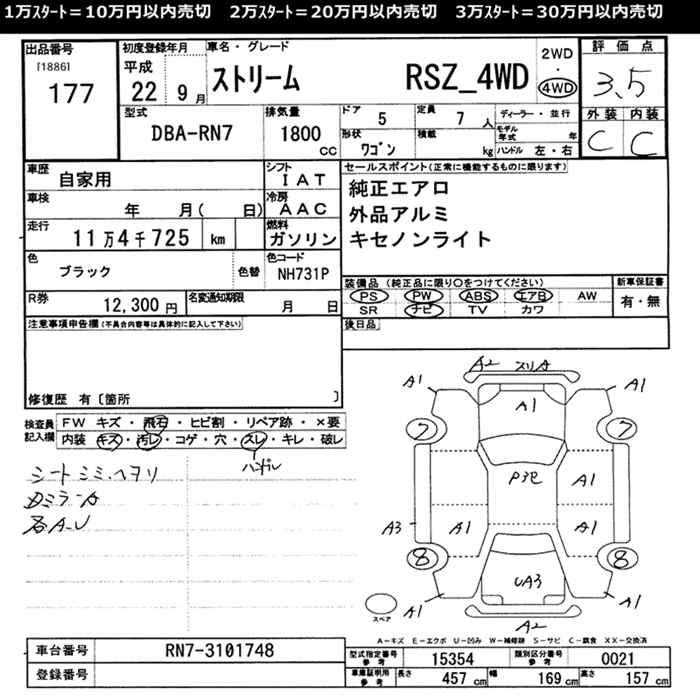 1万ｽﾀｰﾄ＝10万円以内売切　2万ｽﾀｰﾄ＝20万円以内売切　3万ｽﾀｰﾄ＝30万円以内売切
出品番号 [1886] 177
初度登録年月 平成 22年 9月
車名・グレード ストリーム RSZ_4WD
2WD ・ 4WD
評価点 3.5
外装 C 内装 C
型式 DBA-RN7
排気量 1800 CC
ドア 5
定員 7 人
形状 ワゴン
積載 kg
ディーラー・並行
モデル年式 年
ハンドル 左・右
車歴 自家用
シフト IAT
車検 年 月( 日)
冷房 AAC
走行 11万4千725 km
燃料 ガソリン
色 ブラック 色替
色コード NH731P
R券 12,300円
名変通知期限 月 日
セールスポイント(正常に機能するものに限ります)
純正エアロ
外品アルミ
キセノンライト
装備品 (純正品に限り○をつけてください)
PS PW ABS エアB AW
SR ナビ TV カワ
新車保証書 有・無
後日品
注意事項申告欄(不具合内容等は具体的に記入して下さい)
修復歴 有〔箇所 〕
検査員記入欄
FW キズ・飛石・ヒビ割・リペア跡・×要
内装・キズ・汚レ・コゲ・穴・スレ・キレ・破レ
ハンドル
シートシミ・ヘタリ
各A-U
A2 スリA
A1 A1 A1
7 7
P3セ A1
A3 A1 A1
8 8
UA3
A1 A1
A2
スペア
A−キズ E−エクボ U−凹み W−補修跡 S−サビ C−腐食 XX−交換済
車台番号 RN7-3101748
登録番号
型式指定番号 参考 15354
類別区分番号 参考 0021
車庫証明用 参考 長さ 457 cm 幅 169 cm 高さ 157 cm